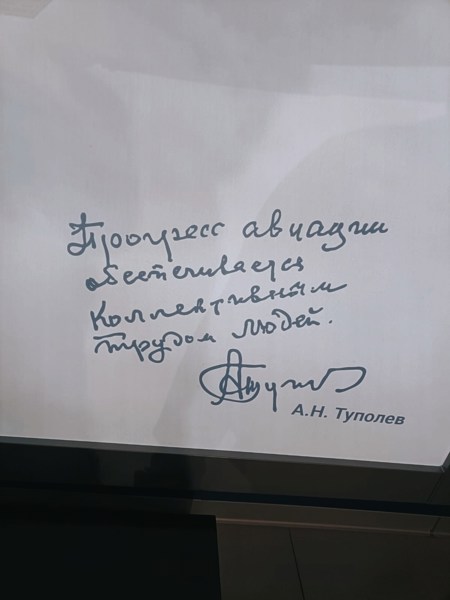 Прогресс авиации
обеспечивается
коллективным
трудом людей.
А.Н. Туполев